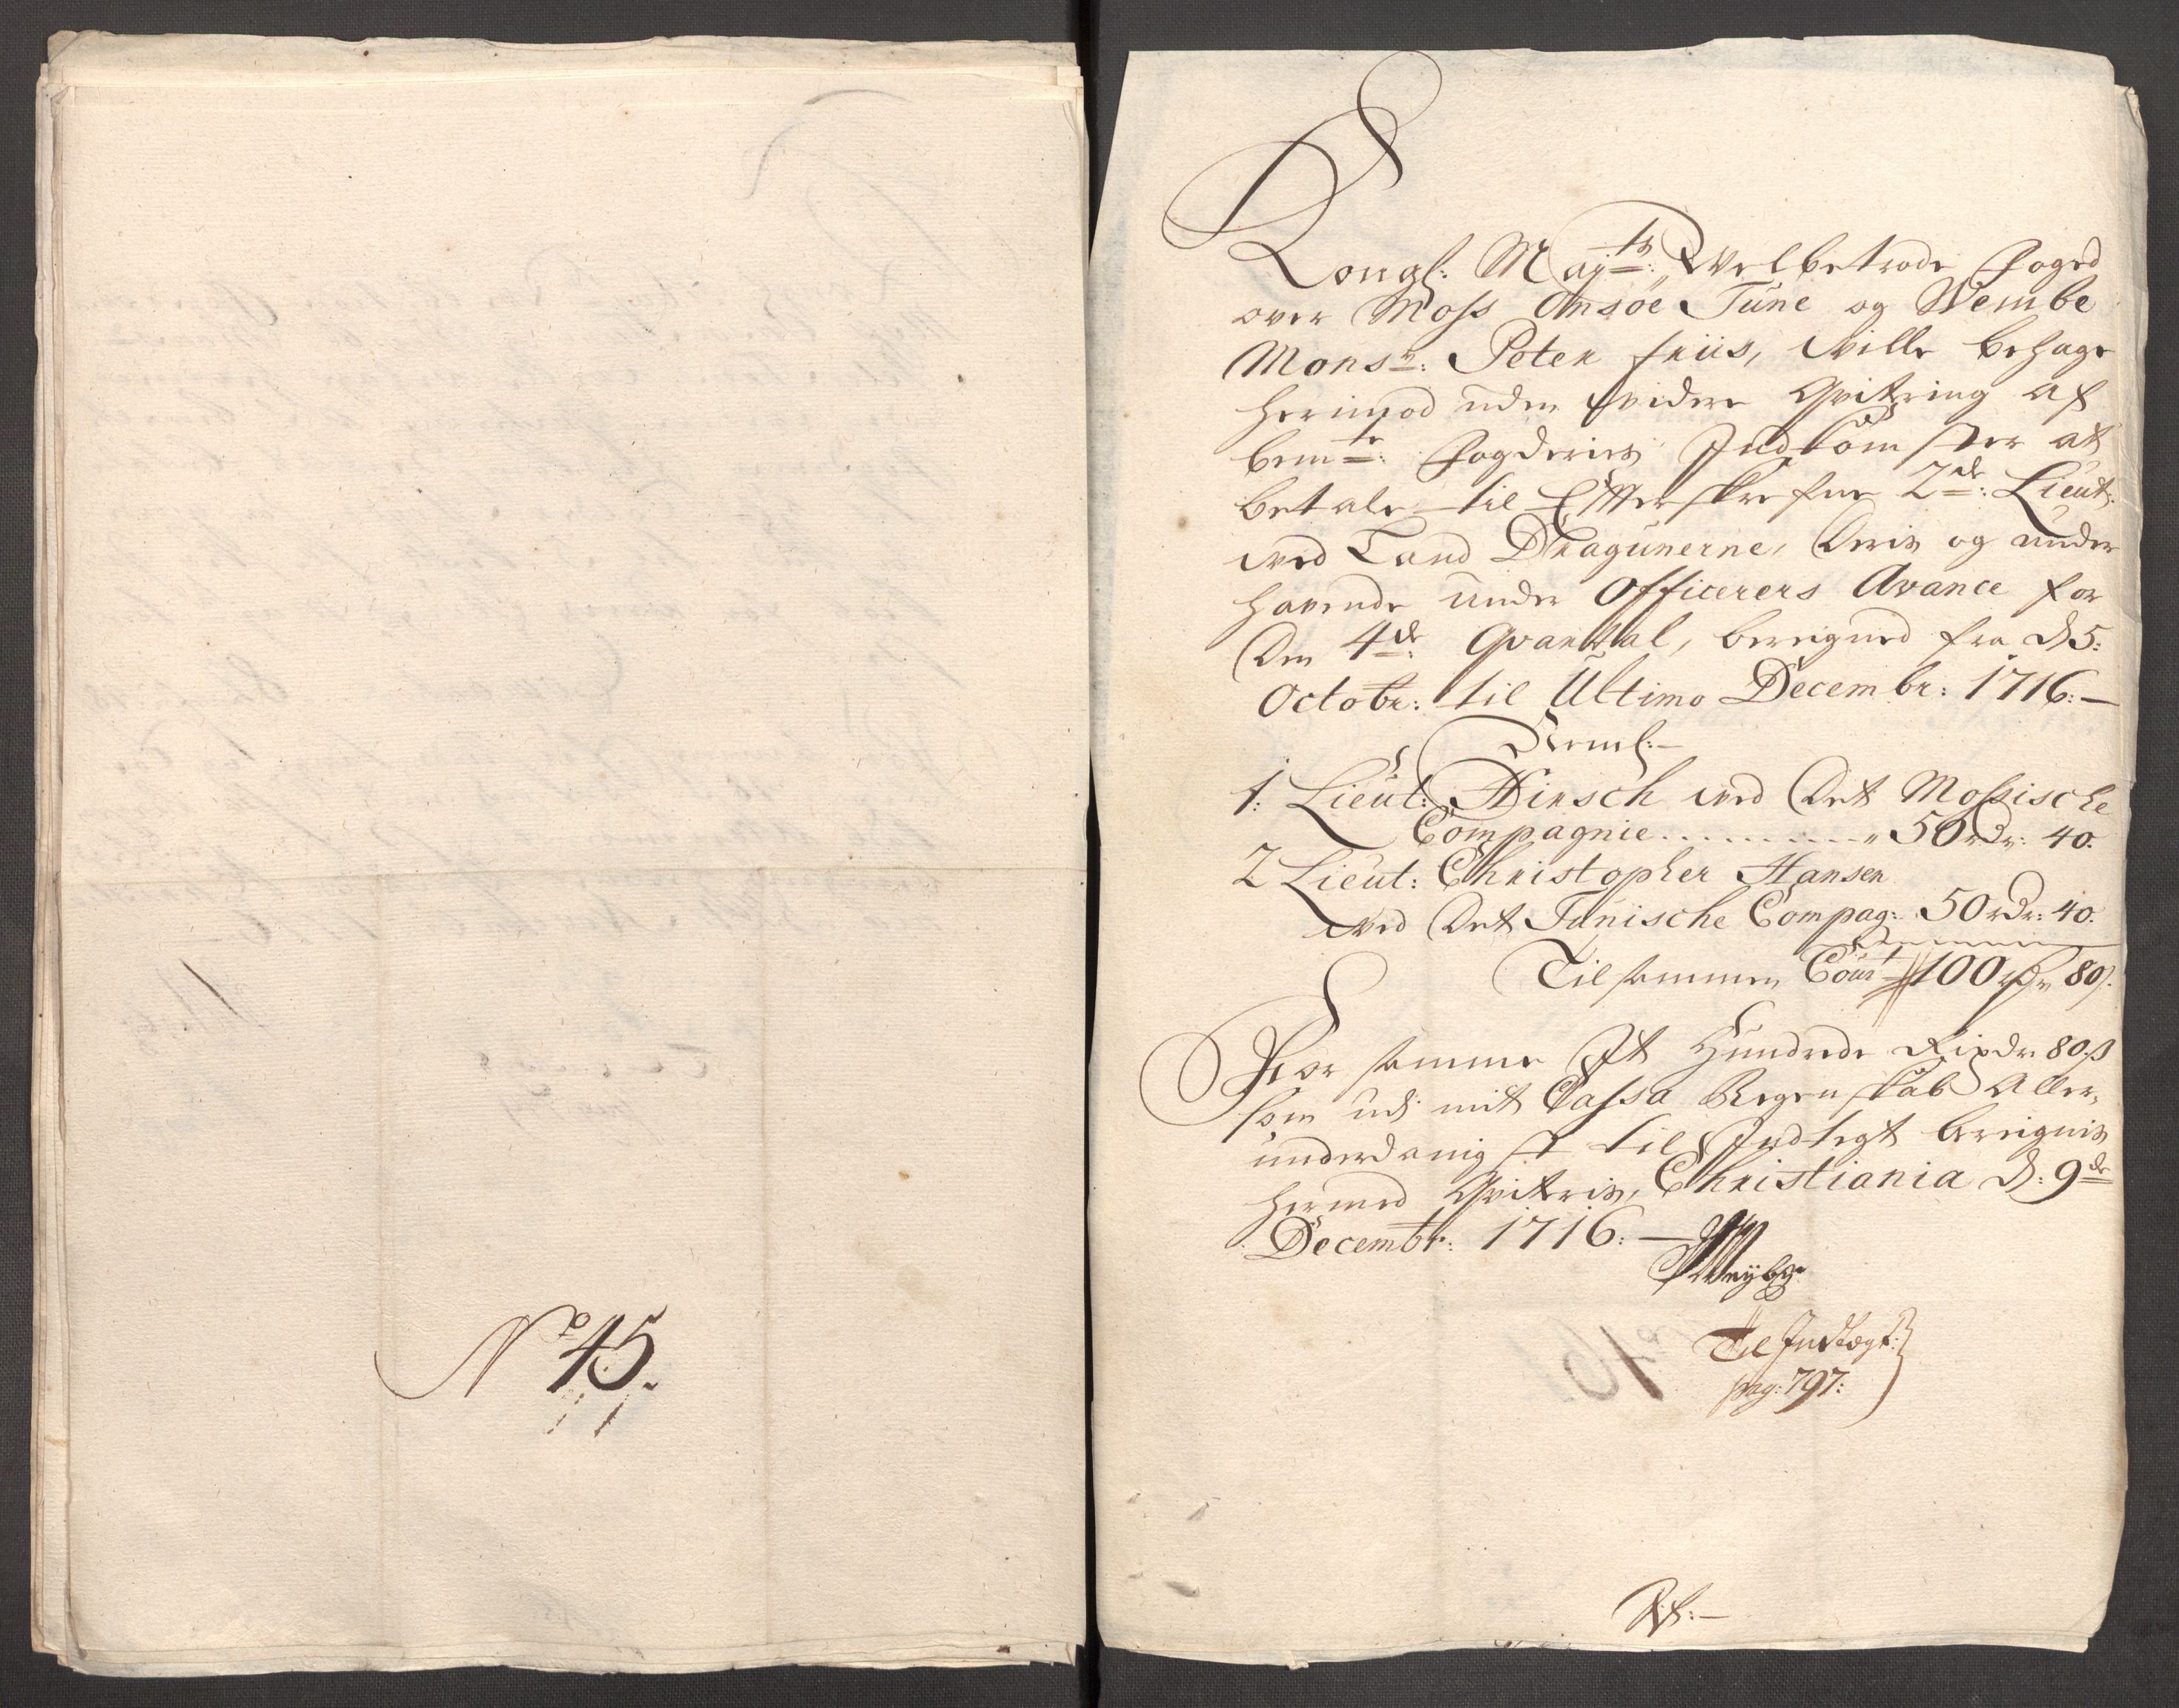 No 45.
Kongl: Mayts: Welbetrode Foged
over Moss Onsøe Tune og Wembe
Monsr: Peter Friis, Wille behage
herimod uden widere Qvitering af
bemte: Fogderies Indkomster at
betale til Efterskrefne 2de: Lieut:
wed Land Dragunerne, Deris og under
havende under Officerers Avance for
Den 4de: Qvartal, bereigned fra d 5:
Octobr: til Ultimo Decembr: 1716:—
Neml:—
1: Lieut: Hirsch wed Det Mossische
Compagnie . . . . . . . . . „ 50 rdr: 40.
2 Lieut: Christopher Hansen
wed Det Tunische Compag: 50 rdr: 40.
Tilsammen Court 100 rdr 80ß.
For samme It Hundrede Rixdr 80ß
som udj mit Cassa Regenskab Aller,
underdanigst til Indtegt bereignis
hermed Qviteris, Christiania d: 9de
Decembr: 1716:—
Til Indtægt:
pag: 797: